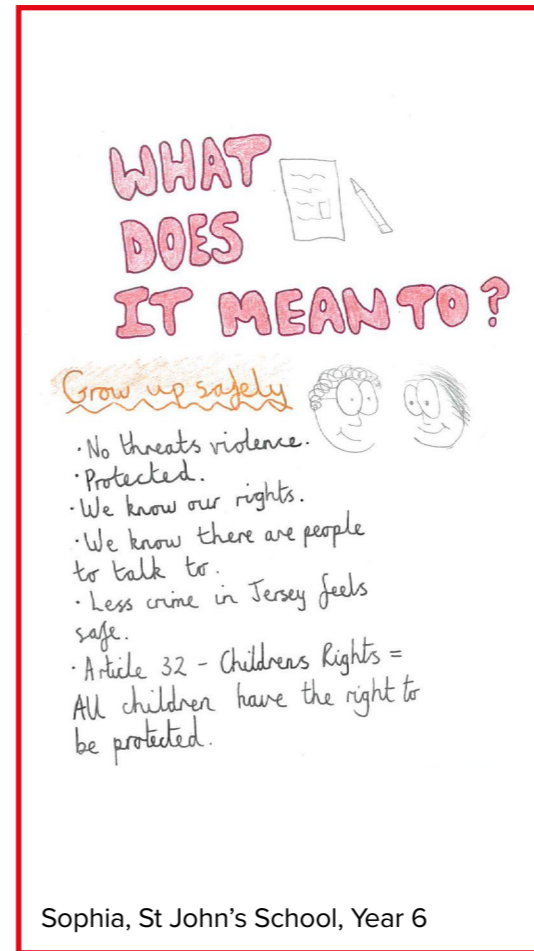 WHAT
DOES
IT MEAN TO?
Grow up safely
· No threats violence.
· Protected.
· We know our rights.
· We know there are people
to talk to.
· Less crime in Jersey feels
safe.
· Article 32 - Childrens Rights =
All children have the right to
be protected.
Sophia, St John's School, Year 6